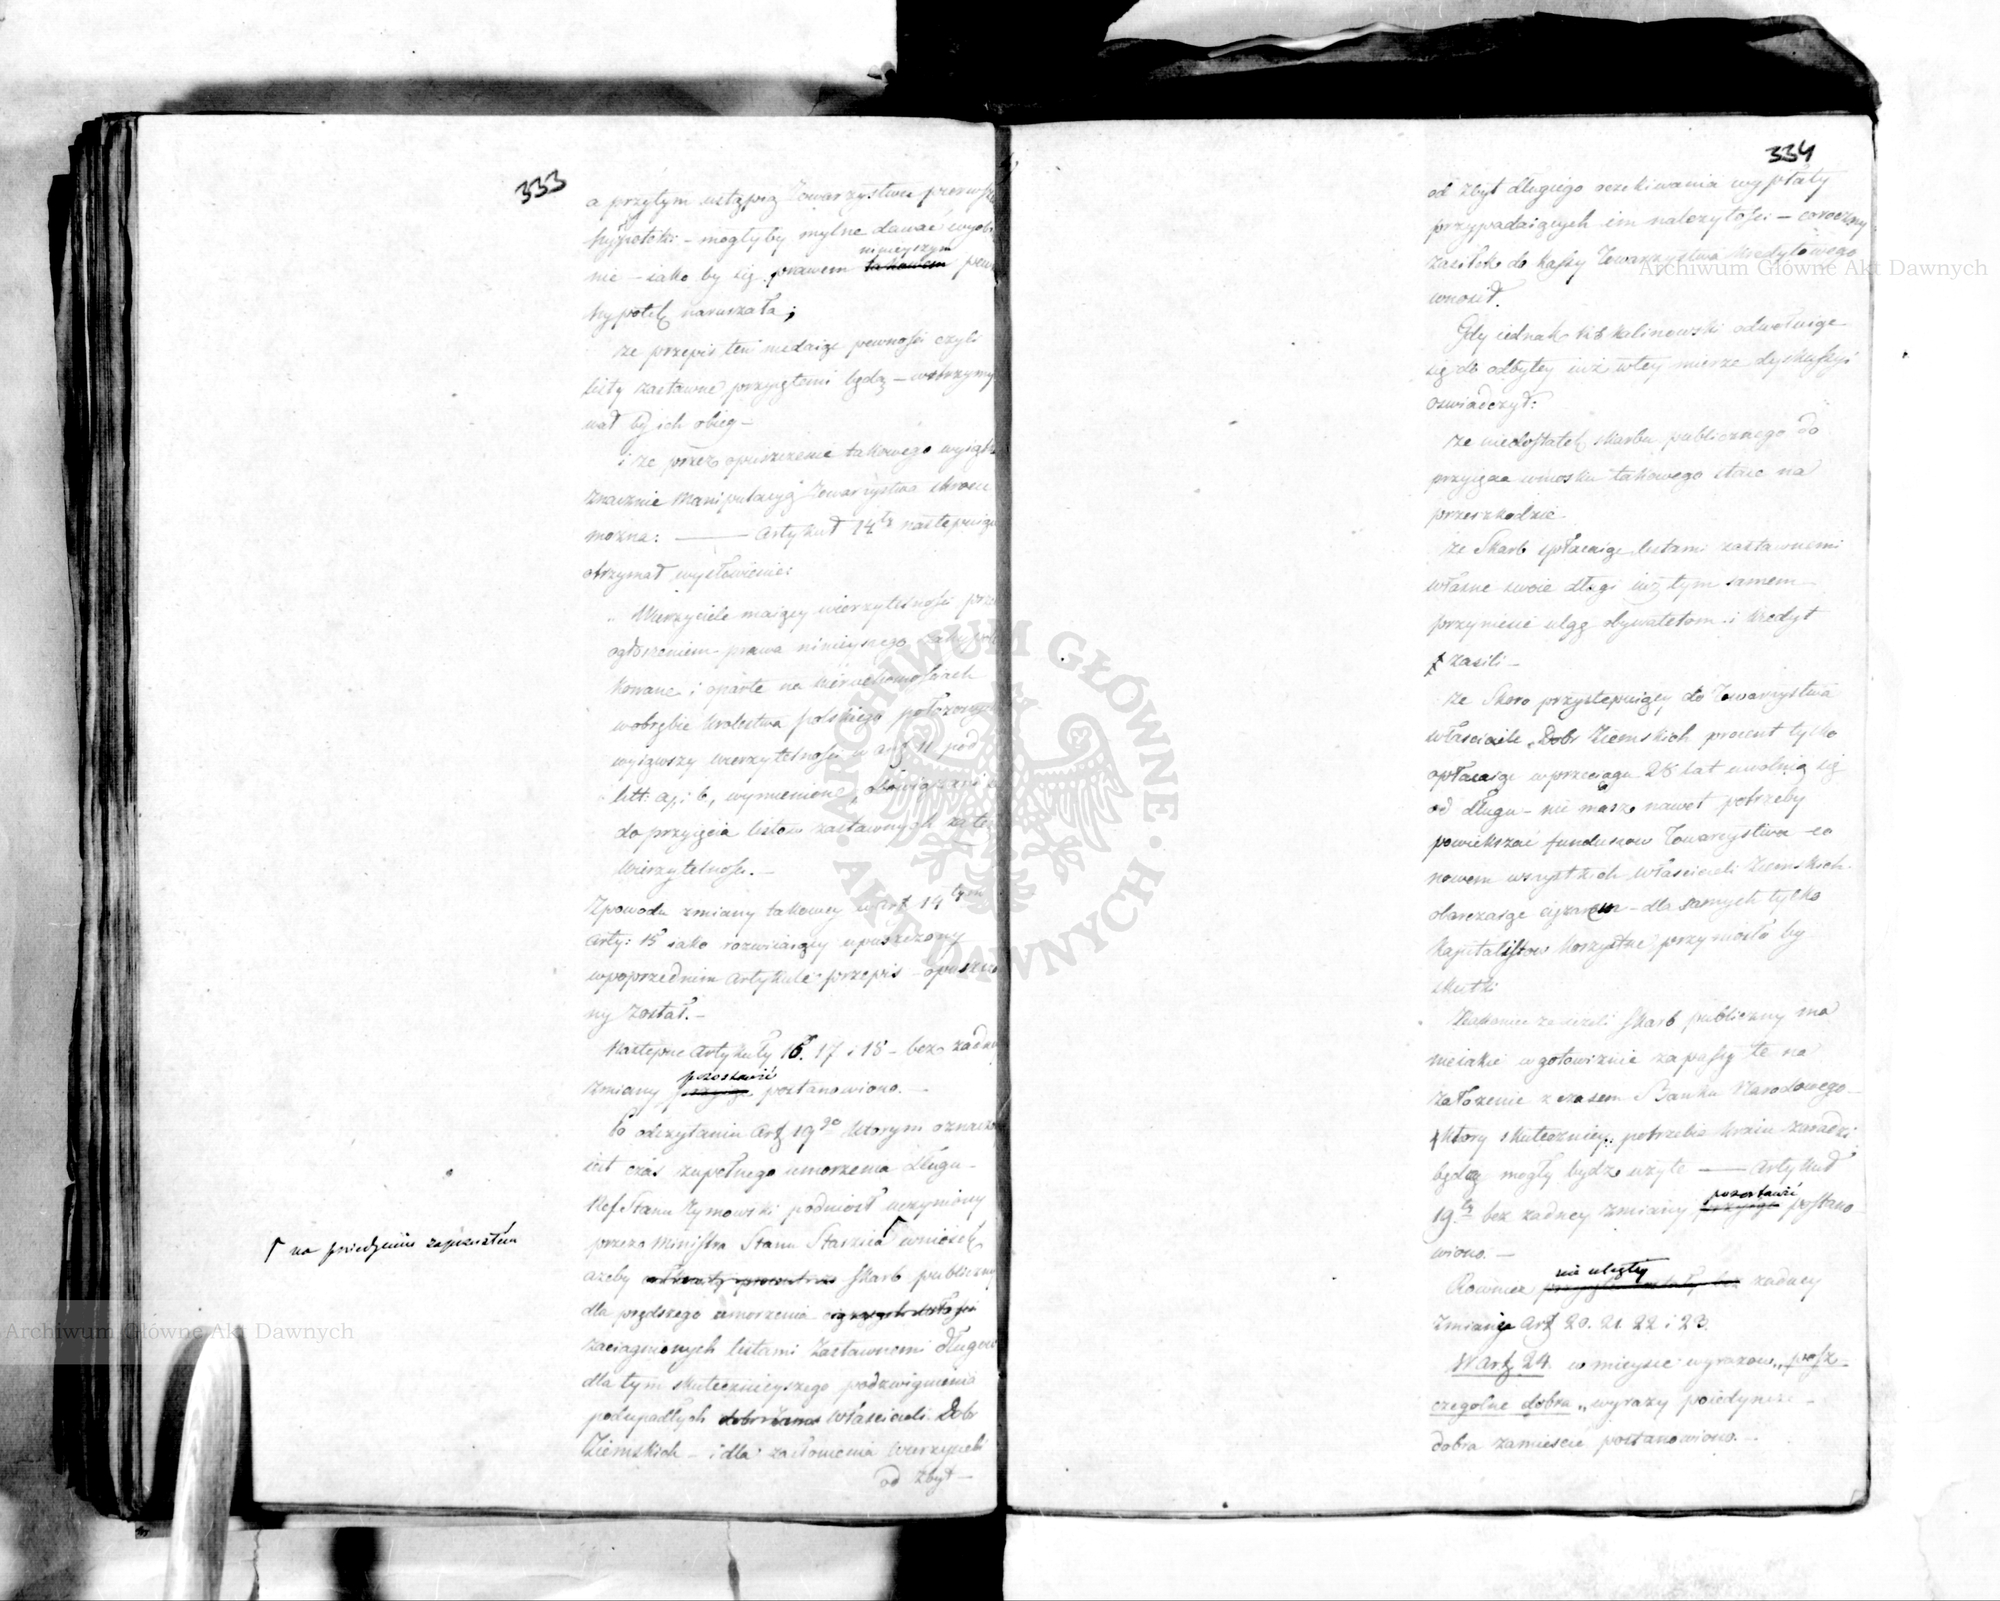 333
a przytym ustąpią Towarzystwu pierwsz
hypoteki – mogłyby mylne dawać wyobr
nie – iako by się prawem ninieyszym takowem pew
hypotek naruszała;
że przepis ten niedaiąc pewności czyli
listy zastawne przyiętemi będą – wstrzymy
wał by ich obieg –
i że przez opuszczenie takowego
znacznie Manipulacyą Towarzystwa skroci
można: —— Artykuł 14ty następuiąc
otrzymał wysłowienie:
„Wierzyciele maiący wierzytelności prze
ogłoszeniem prawa ninieyszego zahypote
kowane i oparte na nieruchomościach
wobrębie Krolestwa polskiego położonych
wyiąwszy wierzytelności w art 11 pod
litt: a, i b, wymienione, obowiązani
do przyięcia listow zastawnych za te
Wierzytelności. –
Zpowodu zmiany takowey w art 14tym
arty: 15 iako rozwiiaiący upuszczony
wpoprzednim artykule przepis – opuszczo
ny został. –
Następne artykuły 16. 17 i 18 – bez żadne
zmiany pozostawić postanowiono. –
Po odczytaniu Art 19go ktorym oznaczo
iest czas zupełnego umorzenia długu –
Ref. Stanu Zymowski podniosł uczyniony
przez Ministra Stanu Staszica ┌ wniosek
┌ na posiedzeniu
ażeby skarb publiczny
dla prędszego umorzenia
zaciągnionych listami Zastawnemi długow
dla tym skutecznieyszego podzwignienia
podupadłych właścicieli Dobr
Ziemskich – i dla zasłonienia Wierzycieli
od zbyt –
334
od zbyt długiego oczekiwania wypłaty
przypadaiących im należytości – coroczny
zasiłek do kassy Towarzystwa Kredytowego
wnosił.
Gdy iednak Kalinowski odwołuiąc
się do odbytey iuż wtey mierze dyskussyi
oswiadczył:
że niedostatek skarbu publicznego do
przyięcia wniosku takowego staie na
przeszkodzie
że Skarb spłacaiąc listami zastawnemi
własne swoie długi iuż tym samem
przyniesie ulgę obywatelom i kredyt
zasili –
że Skoro przystępuiący do Towarzystwa
właściciele Dobr Ziemskich procent tylko
opłacaiąc wprzeciągu 28 lat uwolnią się
od długu – nie masz nawet potrzeby
powiekszać funduszow Towarzystwa – co
nowem wszystkich właścicieli Ziemskich
obarczaiąc ciężarem – dla samych tylko
kapitalistow korzystne przyniosło by
skutki
Nakoniec że ieżeli Skarb publiczny ma
nieiakie w gotowiznie zapassy te na
założenie z czasem Banku Narodowego
ktory skuteczniey potrzebie kraiu zaradzi
będą mogły bydz użyte —— Artykuł
19ty bez żadney zmiany pozostawić postano
wiono. –
Rownież nie uległy żadney
zmianie Art 20. 21. 22 i 23.
W art 24. w mieysce wyrazow „posz
czegolne dobra„ wyrazy poiedyncze
dobra zamieścić postanowiono. –
Archiwum Główne Akt Dawnych
Archiwum Główne Akt Dawnych
ARCHIWUM GŁÓWNE · AKT DAWNYCH ·